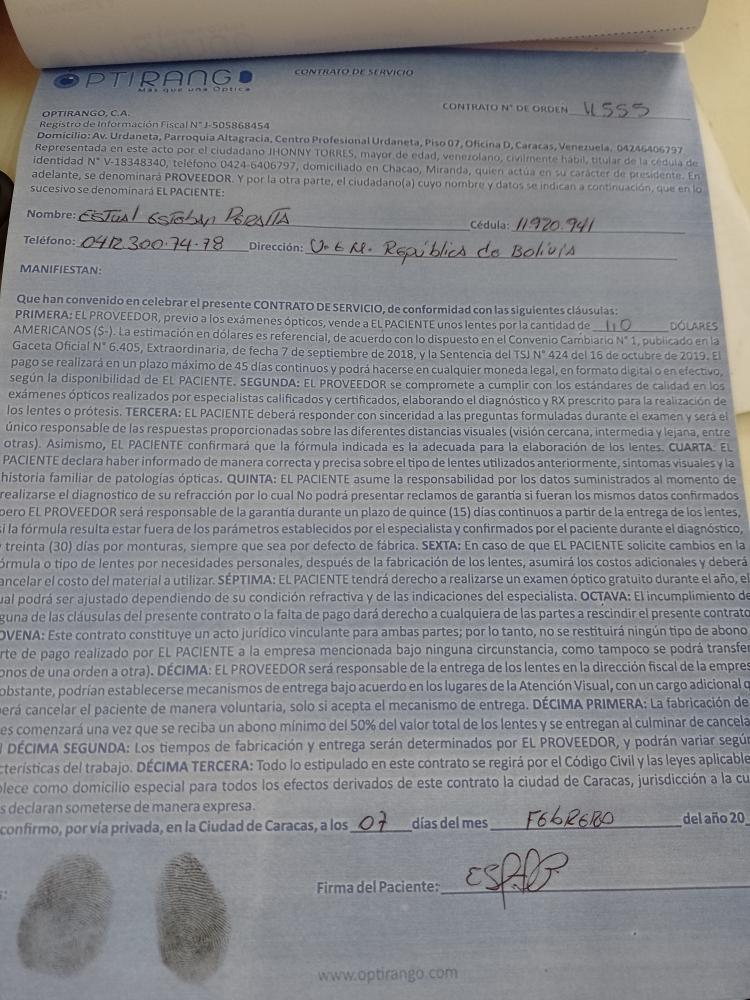 OPTIRANGO
Más que una Óptica
CONTRATO DE SERVICIO
CONTRATO N° DE ORDEN 4555
OPTIRANGO, C.A.
Registro de Información Fiscal N° J-505868454
Domicilio: Av. Urdaneta, Parroquia Altagracia, Centro Profesional Urdaneta, Piso 07, Oficina D, Caracas, Venezuela, 04246406797
Representada en este acto por el ciudadano JHONNY TORRES, mayor de edad, venezolano, civilmente hábil, titular de la cédula de
identidad N° V-18348340, teléfono 0424-6406797, domiciliado en Chacao, Miranda, quien actúa en su carácter de presidente. En
adelante, se denominará PROVEEDOR. Y por la otra parte, el ciudadano(a) cuyo nombre y datos se indican a continuación, que en lo
sucesivo se denominará EL PACIENTE:
Nombre: Esteban Cédula: 11920.941
Teléfono: 0412.300.74.78 Dirección: República de Bolivia
MANIFIESTAN:
Que han convenido en celebrar el presente CONTRATO DE SERVICIO, de conformidad con las siguientes cláusulas:
PRIMERA: EL PROVEEDOR, previo a los exámenes ópticos, vende a EL PACIENTE unos lentes por la cantidad de 110 DÓLARES
AMERICANOS ($-). La estimación en dólares es referencial, de acuerdo con lo dispuesto en el Convenio Cambiario N° 1, publicado en la
Gaceta Oficial N° 6.405, Extraordinaria, de fecha 7 de septiembre de 2018, y la Sentencia del TSJ N° 424 del 16 de octubre de 2019. El
pago se realizará en un plazo máximo de 45 días continuos y podrá hacerse en cualquier moneda legal, en formato digital o en efectivo,
según la disponibilidad de EL PACIENTE. SEGUNDA: EL PROVEEDOR se compromete a cumplir con los estándares de calidad en los
exámenes ópticos realizados por especialistas calificados y certificados, elaborando el diagnóstico y RX prescrito para la realización de
los lentes o prótesis. TERCERA: EL PACIENTE deberá responder con sinceridad a las preguntas formuladas durante el examen y será el
único responsable de las respuestas proporcionadas sobre las diferentes distancias visuales (visión cercana, intermedia y lejana, entre
otras). Asimismo, EL PACIENTE confirmará que la fórmula indicada es la adecuada para la elaboración de los lentes. CUARTA: EL
PACIENTE declara haber informado de manera correcta y precisa sobre el tipo de lentes utilizados anteriormente, síntomas visuales y la
historia familiar de patologías ópticas. QUINTA: EL PACIENTE asume la responsabilidad por los datos suministrados al momento de
realizarse el diagnostico de su refracción por lo cual No podrá presentar reclamos de garantía si fueran los mismos datos confirmados
pero EL PROVEEDOR será responsable de la garantía durante un plazo de quince (15) días continuos a partir de la entrega de los lentes,
si la fórmula resulta estar fuera de los parámetros establecidos por el especialista y confirmados por el paciente durante el diagnóstico,
y treinta (30) días por monturas, siempre que sea por defecto de fábrica. SEXTA: En caso de que EL PACIENTE solicite cambios en la
órmula o tipo de lentes por necesidades personales, después de la fabricación de los lentes, asumirá los costos adicionales y deberá
ancelar el costo del material a utilizar. SÉPTIMA: EL PACIENTE tendrá derecho a realizarse un examen óptico gratuito durante el año, el
ual podrá ser ajustado dependiendo de su condición refractiva y de las indicaciones del especialista. OCTAVA: El incumplimiento de
guna de las cláusulas del presente contrato o la falta de pago dará derecho a cualquiera de las partes a rescindir el presente contrato
OVENA: Este contrato constituye un acto jurídico vinculante para ambas partes; por lo tanto, no se restituirá ningún tipo de abono
rte de pago realizado por EL PACIENTE a la empresa mencionada bajo ninguna circunstancia, como tampoco se podrá transfer
onos de una orden a otra). DÉCIMA: EL PROVEEDOR será responsable de la entrega de los lentes en la dirección fiscal de la empres
obstante, podrían establecerse mecanismos de entrega bajo acuerdo en los lugares de la Atención Visual, con un cargo adicional q
erá cancelar el paciente de manera voluntaria, solo si acepta el mecanismo de entrega. DÉCIMA PRIMERA: La fabricación de
es comenzará una vez que se reciba un abono mínimo del 50% del valor total de los lentes y se entregan al culminar de cancela
l DÉCIMA SEGUNDA: Los tiempos de fabricación y entrega serán determinados por EL PROVEEDOR, y podrán variar según
cterísticas del trabajo. DÉCIMA TERCERA: Todo lo estipulado en este contrato se regirá por el Código Civil y las leyes aplicable
blece como domicilio especial para todos los efectos derivados de este contrato la ciudad de Caracas, jurisdicción a la cu
s declaran someterse de manera expresa.
confirmo, por vía privada, en la Ciudad de Caracas, a los 07 días del mes FEBRERO del año 20
Firma del Paciente:
www.optirango.com